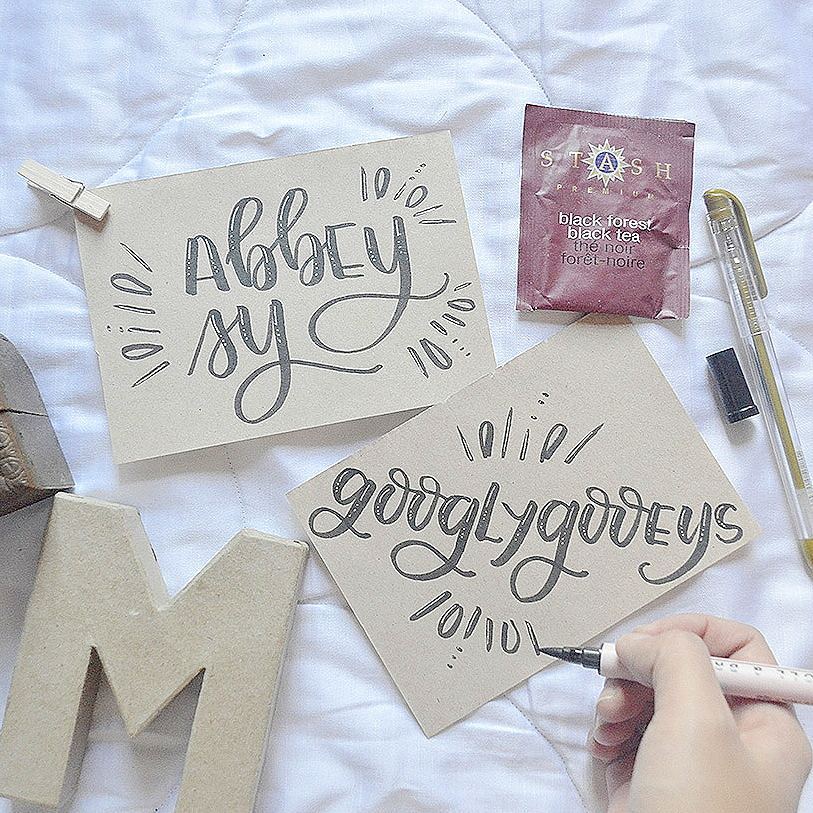 ABBEY
sy
STASH
PREMIUM
black forest
black tea
thé noir
forêt-noire
googlygooeys
M